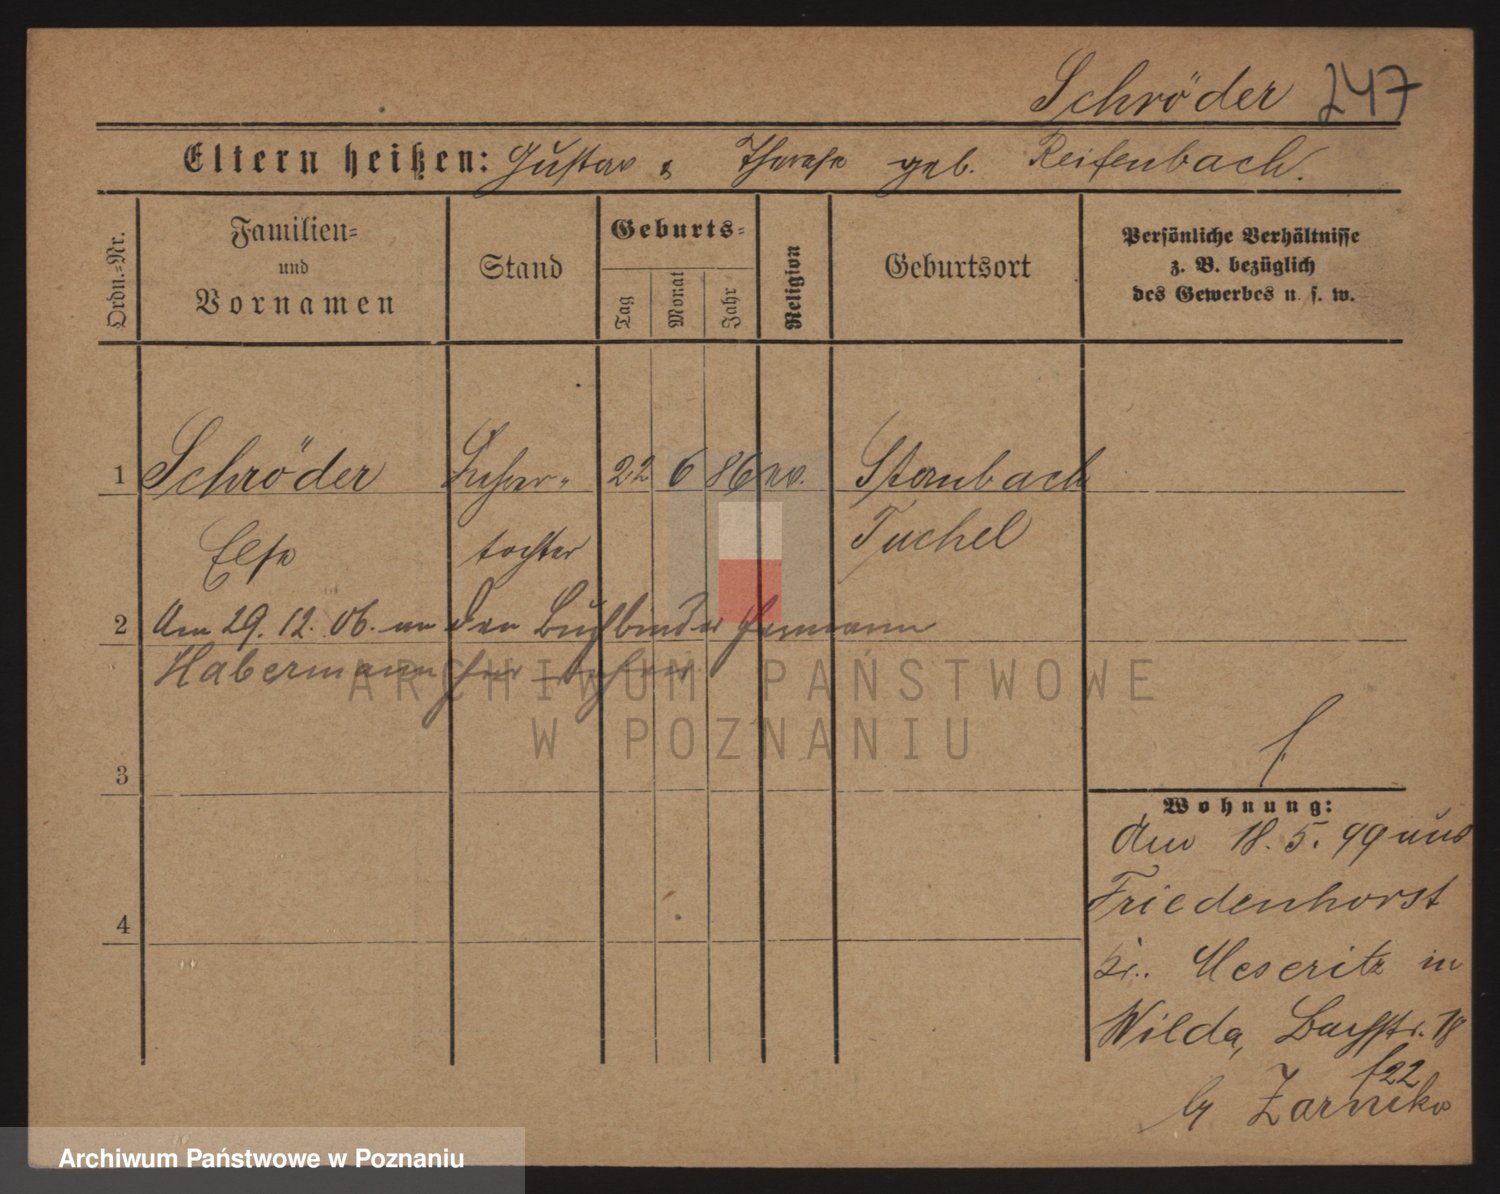 Schröder 247
Eltern heißen: Gustav & Therese geb. Reifenbach.
Ordn.-Nr.
Familien- und Vornamen
Stand
Geburts-
Tag
Monat
Jahr
Religion
Geburtsort
Persönliche Verhältnisse
z. B. bezüglich
des Gewerbes u. s. w.
1 Schröder 22 6 86 ev.
Else tochter Tuchel
2 Am 29. 12. 06. an den Buchbinder Hermann
Habermann
3
4
Wohnung:
Am 18. 5. 99 aus
Friedenhorst
Kr. Meseritz in
Wilda, 18
f22
ARCHIWUM PAŃSTWOWE
W POZNANIU
Archiwum Państwowe w Poznaniu